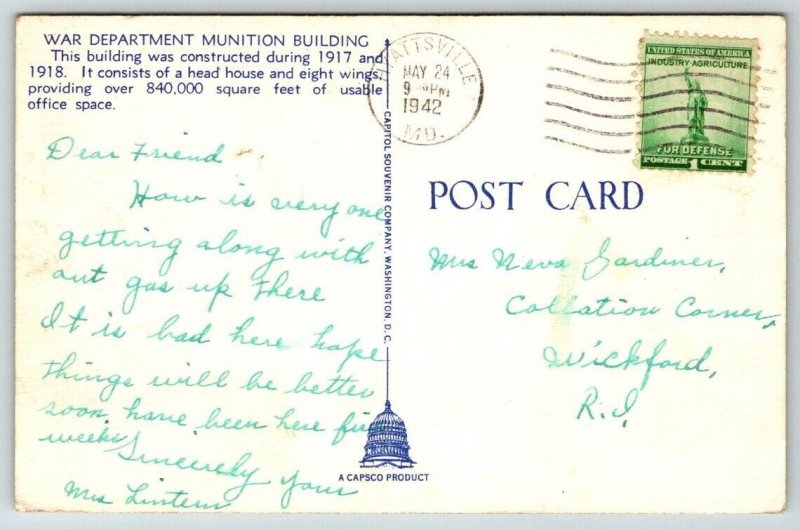 WAR DEPARTMENT MUNITION BUILDING
This building was constructed during 1917 and
1918. It consists of a head house and eight wings,
providing over 840,000 square feet of usable
office space.
HYATTSVILLE
MAY 24
9 PM
1942
MD.
UNITED STATES OF AMERICA
INDUSTRY-AGRICULTURE
FOR DEFENSE
POSTAGE 1 CENT
Dear Friend
How is every one
getting along with
out gas up there
It is bad here hope
things will be better
soon have been here five
weeks
Sincerely yours
Mrs Lintern
CAPITOL SOUVENIR COMPANY, WASHINGTON, D. C.
A CAPSCO PRODUCT
POST CARD
Mrs Neva Gardiner,
Collation Corner,
Wickford,
R.I.